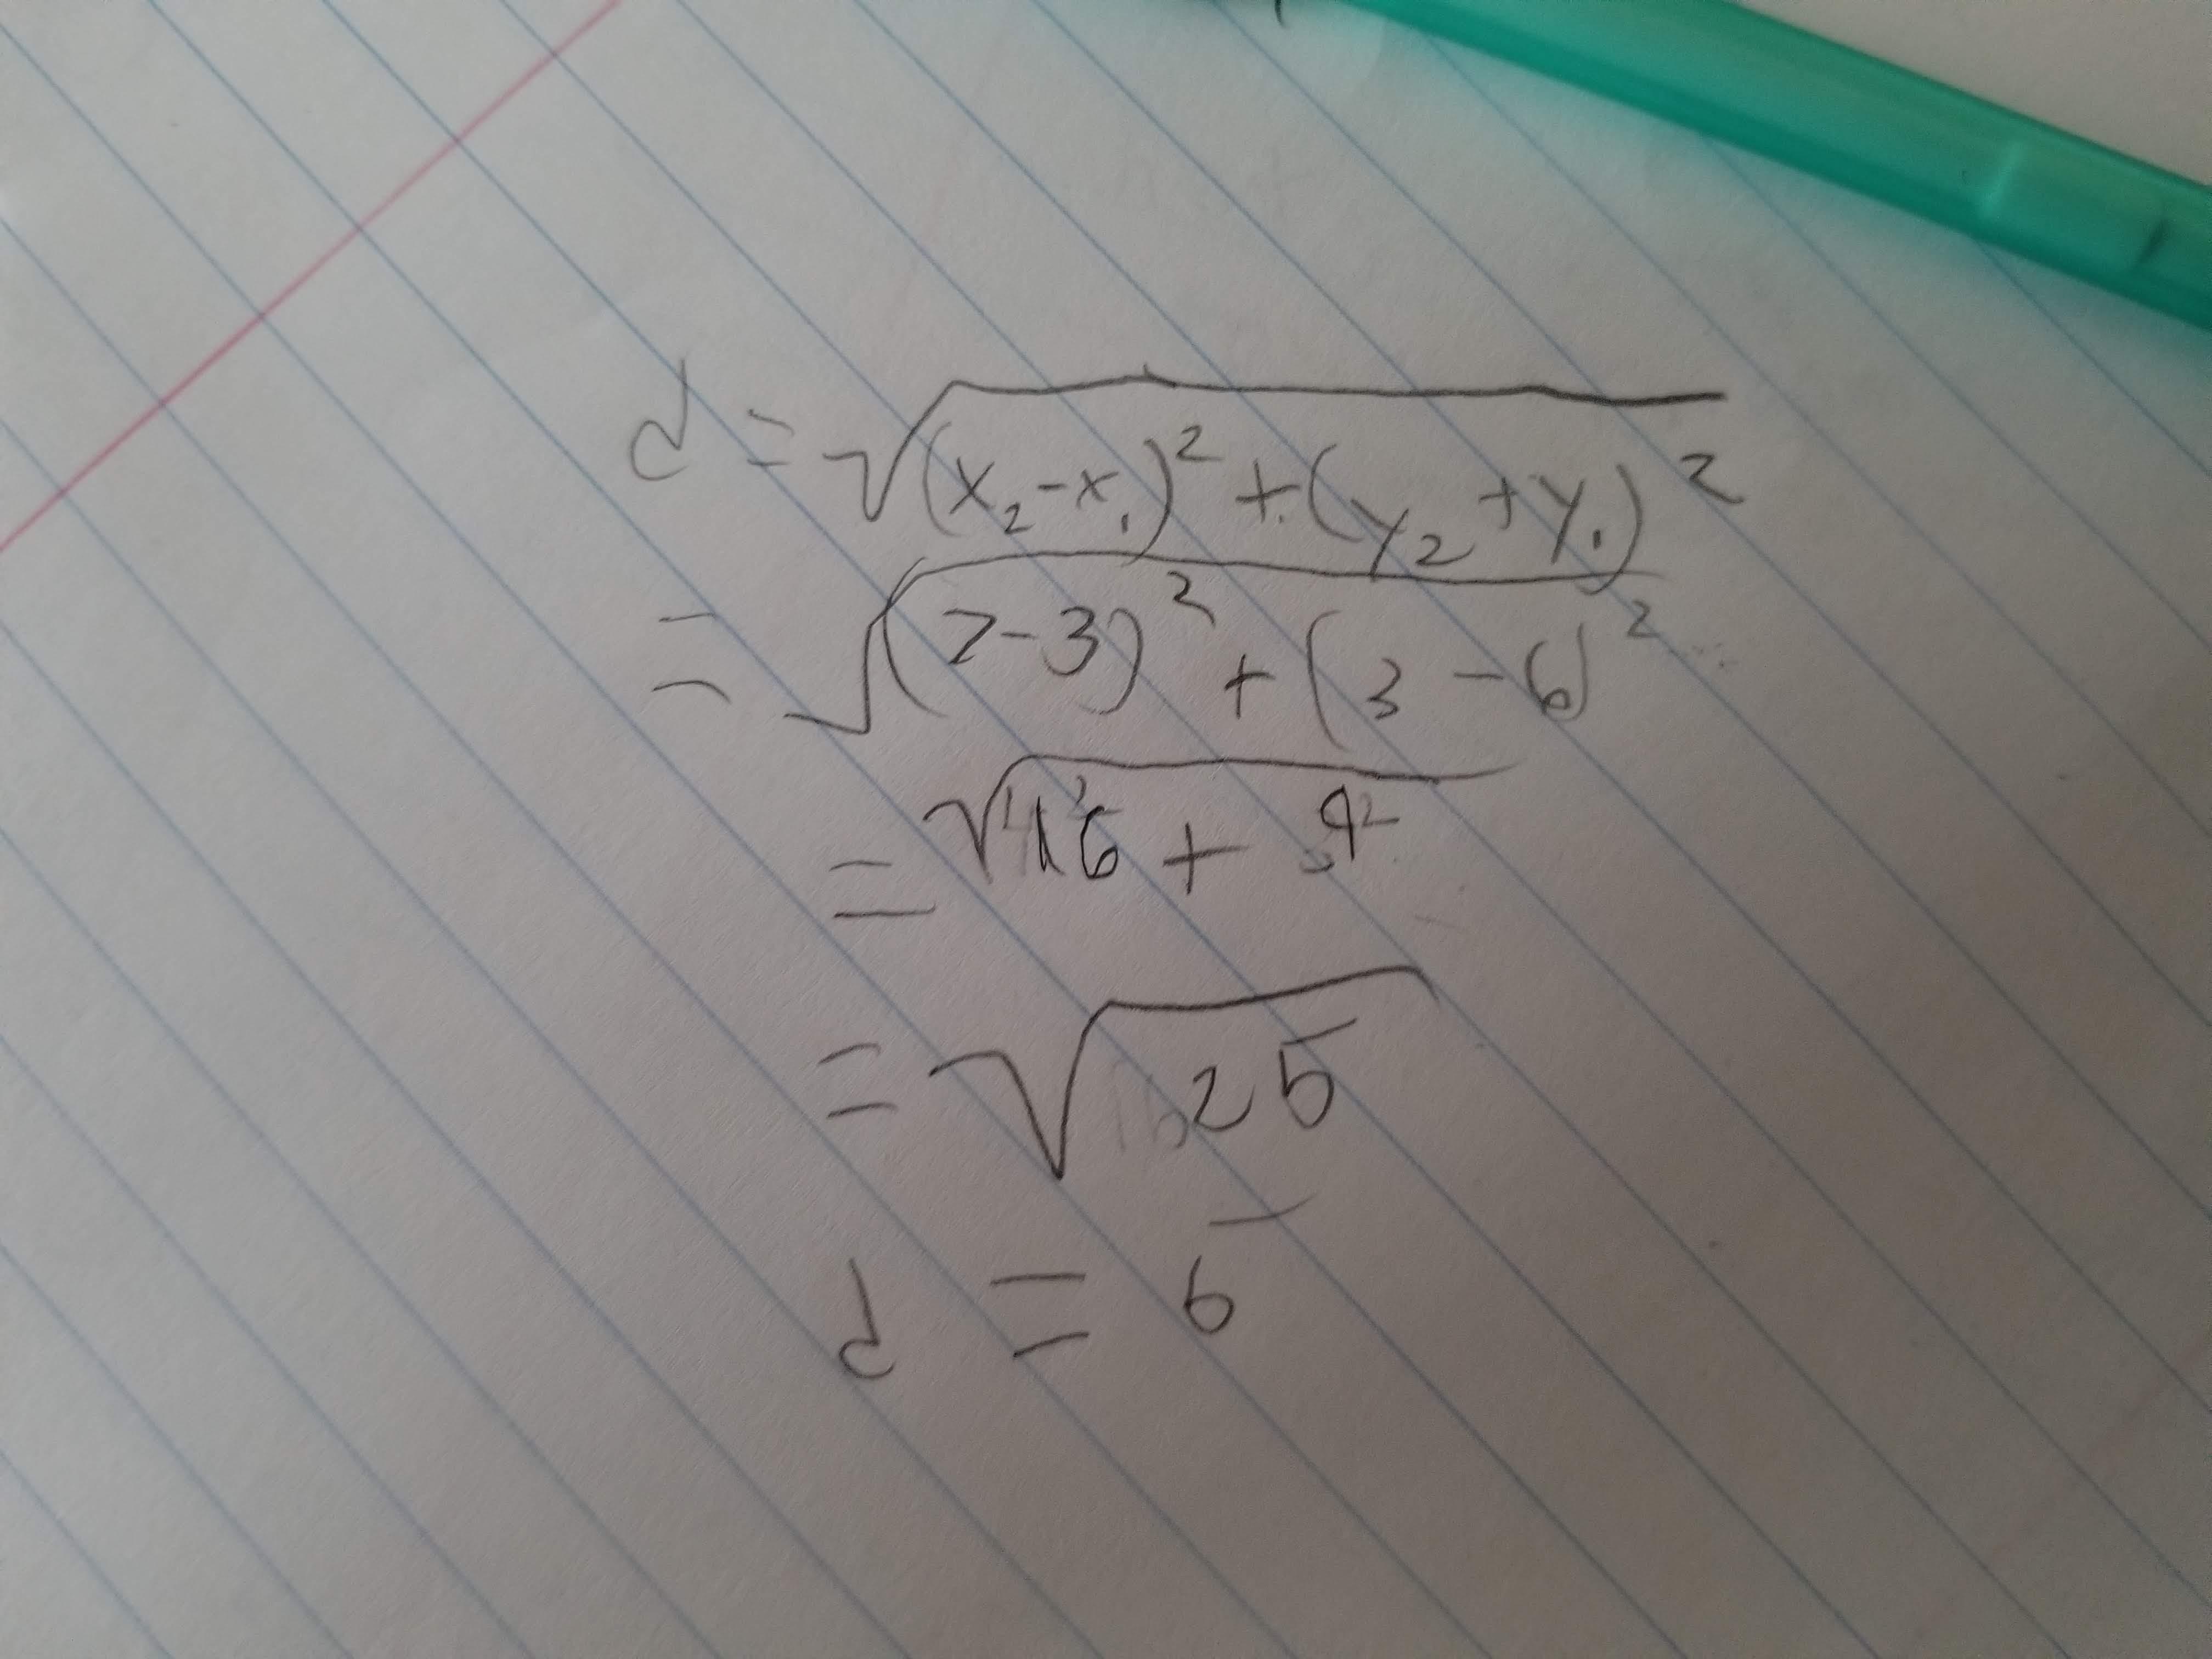 d = √(x₂-x₁)² + (y₂+y₁)²
= √(7-3)² + (3-6)²
= √16 + 9
= √25
d = 5